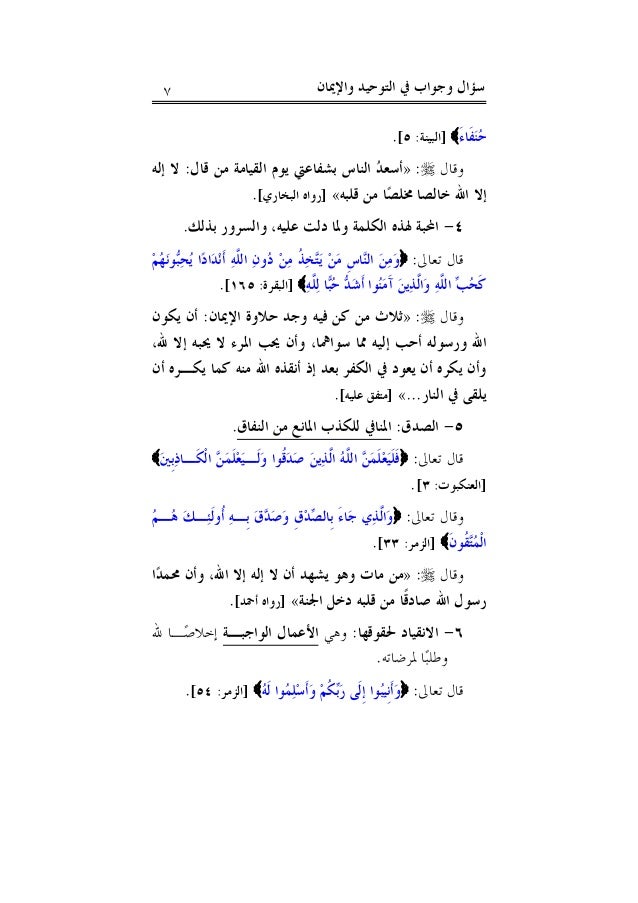 سؤال وجواب في التوحيد والإيمان ٧
حُنَفَاءَ﴾ [البينة: ٥].
وقال ﷺ: «أسعدُ الناس بشفاعتي يوم القيامة من قال: لا إله
إلا الله خالصا مخلصًا من قلبه» [رواه البخاري].
٤- المحبة لهذه الكلمة ولما دلت عليه، والسرور بذلك.
قال تعالى: ﴿وَمِنَ النَّاسِ مَنْ يَتَّخِذُ مِنْ دُونِ اللَّهِ أَنْدَادًا يُحِبُّونَهُمْ
كَحُبِّ اللَّهِ وَالَّذِينَ آمَنُوا أَشَدُّ حُبًّا لِلَّهِ﴾ [البقرة: ١٦٥].
وقال ﷺ: «ثلاث من كن فيه وجد حلاوة الإيمان: أن يكون
الله ورسوله أحب إليه مما سواهما، وأن يحب المرء لا يحبه إلا لله،
وأن يكره أن يعود في الكفر بعد إذ أنقذه الله منه كما يكـــره أن
يلقى في النار...» [متفق عليه].
٥- الصدق: المنافي للكذب المانع من النفاق.
قال تعالى: ﴿فَلَيَعْلَمَنَّ اللَّهُ الَّذِينَ صَدَقُوا وَلَـــيَعْلَمَنَّ الْكَـــاذِبِينَ﴾
[العنكبوت: ٣].
وقال تعالى: ﴿وَالَّذِي جَاءَ بِالصِّدْقِ وَصَدَّقَ بِـــهِ أُولَئِـــكَ هُـــمُ
الْمُتَّقُونَ﴾ [الزمر: ٣٣].
وقال ﷺ: «من مات وهو يشهد أن لا إله إلا الله، وأن محمدًا
رسول الله صادقًا من قلبه دخل الجنة» [رواه أحمد].
٦- الانقياد لحقوقها: وهي الأعمال الواجبـــة إخلاصًـــا لله
وطلبًا لمرضاته.
قال تعالى: ﴿وَأَنِيبُوا إِلَى رَبِّكُمْ وَأَسْلِمُوا لَهُ﴾ [الزمر: ٥٤].